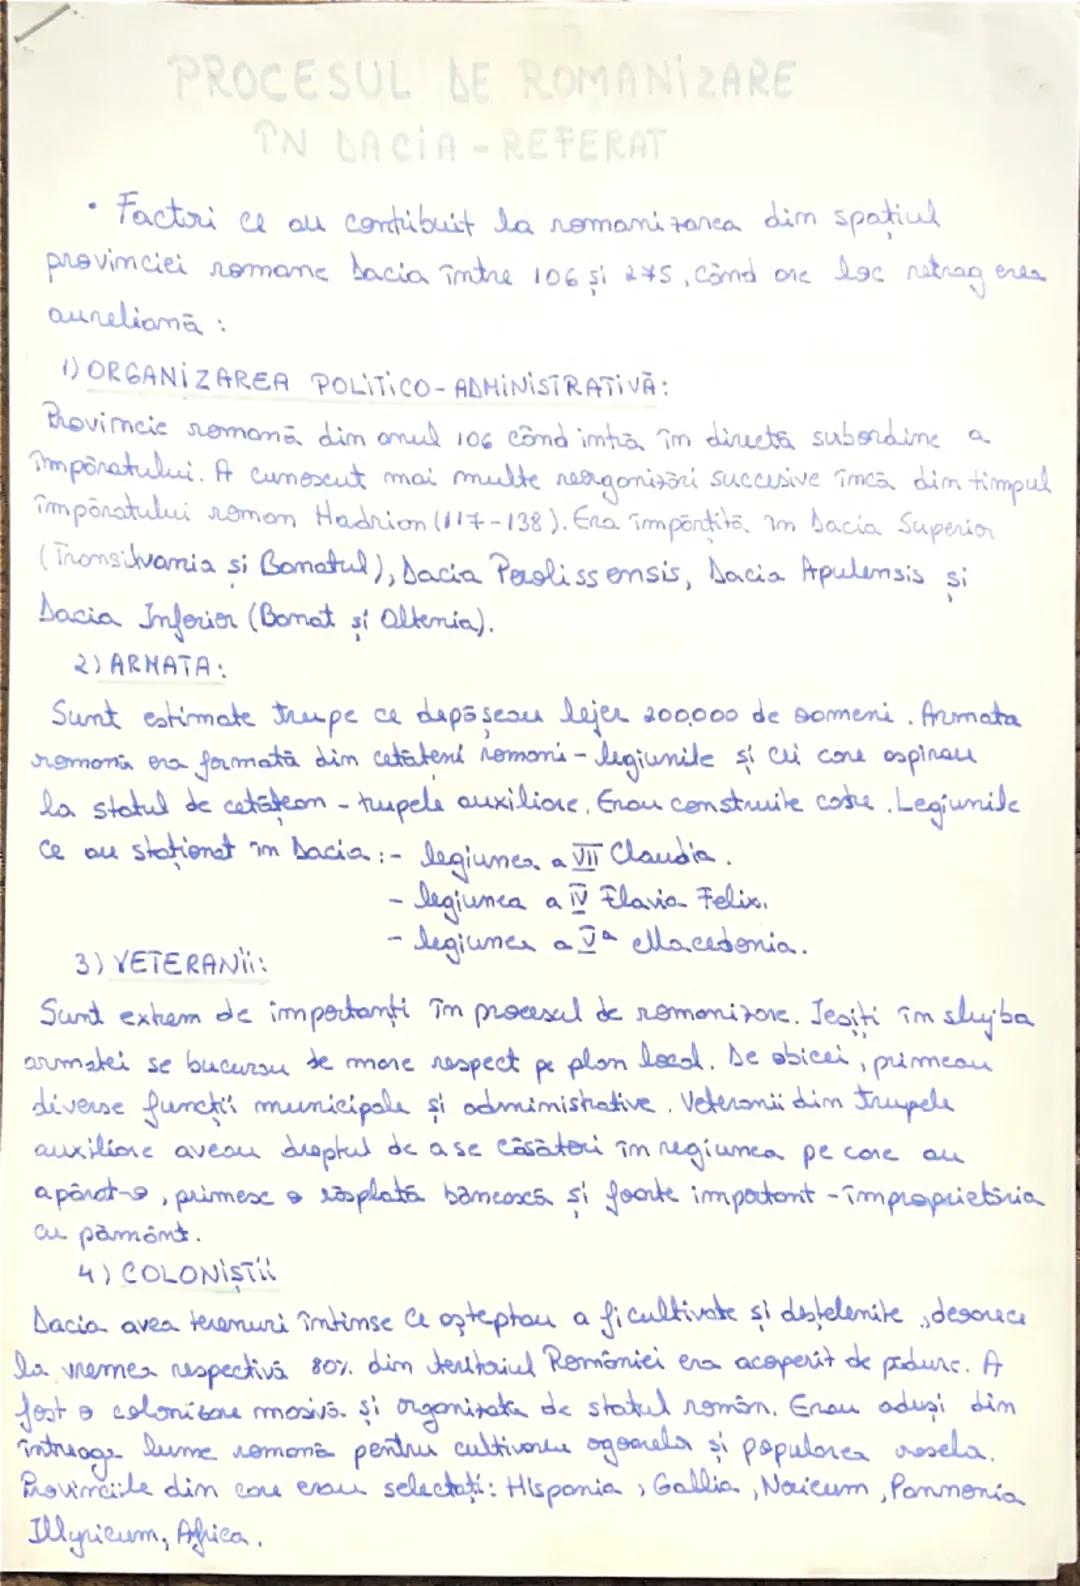 PROCESUL DE ROMANIZARE
ÎN DACIA - REFERAT
• Factori ce au contibuit la romanizarea dim spațiul
provinciei romane Dacia între 106 și 275, când are loc retragerea
aureliană :
1) ORGANIZAREA POLITICO-ADMINISTRATIVĂ:
Provincie romană din anul 106 când intră în directă subordine a
împăratului. A cunoscut mai multe reorganizări succesive încă din timpul
împăratului roman Hadrian (117-138). Era împărțită în Dacia Superior
(Transilvania și Banatul), Dacia Porolissensis, Dacia Apulensis și
Dacia Inferior (Banat și Oltenia).
2) ARMATA:
Sunt estimate trupe ce depășeau lejer 200.000 de oameni. Armata
romană era formată din cetățeni romani - legiunile și cei care aspirau
la statul de cetățean - trupele auxiliare. Erau construite castre. Legiunile
ce au staționat în Dacia :- legiunea a VII Claudia.
- legiunea a IV Flavia Felix.
- legiunea a Va Macedonia.
3) VETERANII:
Sunt extrem de importanți în procesul de romanizare. Ieșiți în slujba
armatei se bucurau de mare respect pe plan local. De obicei, primeau
diverse funcții municipale și administrative. Veteranii din trupele
auxiliare aveau dreptul de a se căsători în regiunea pe care au
apărat-o, primesc o răsplată bănească și foarte important - împroprietăria
cu pământ.
4) COLONIȘTII
Dacia avea terenuri întinse ce așteptau a fi cultivate și deștelenite, deoarece
la vremea respectivă 80% din teritoriul României era acoperit de pădure. A
fost o colonizare masivă și organizată de statul român. Erau aduși din
întreaga lume romană pentru cultivarea ogoarelor și popularea orașelor.
Provinciile din care erau selectați: Hispania, Gallia, Noricum, Pannonia
Illyricum, Africa.